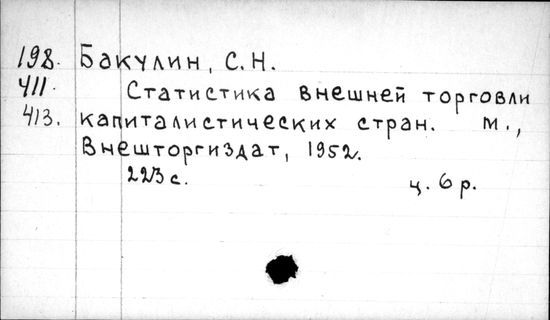 198. Бакулин, С.Н.
411. Статистика внешней торговли
413. капиталистических стран. М.,
Внешторгиздат, 1952.
223 с. ц. 6 р.